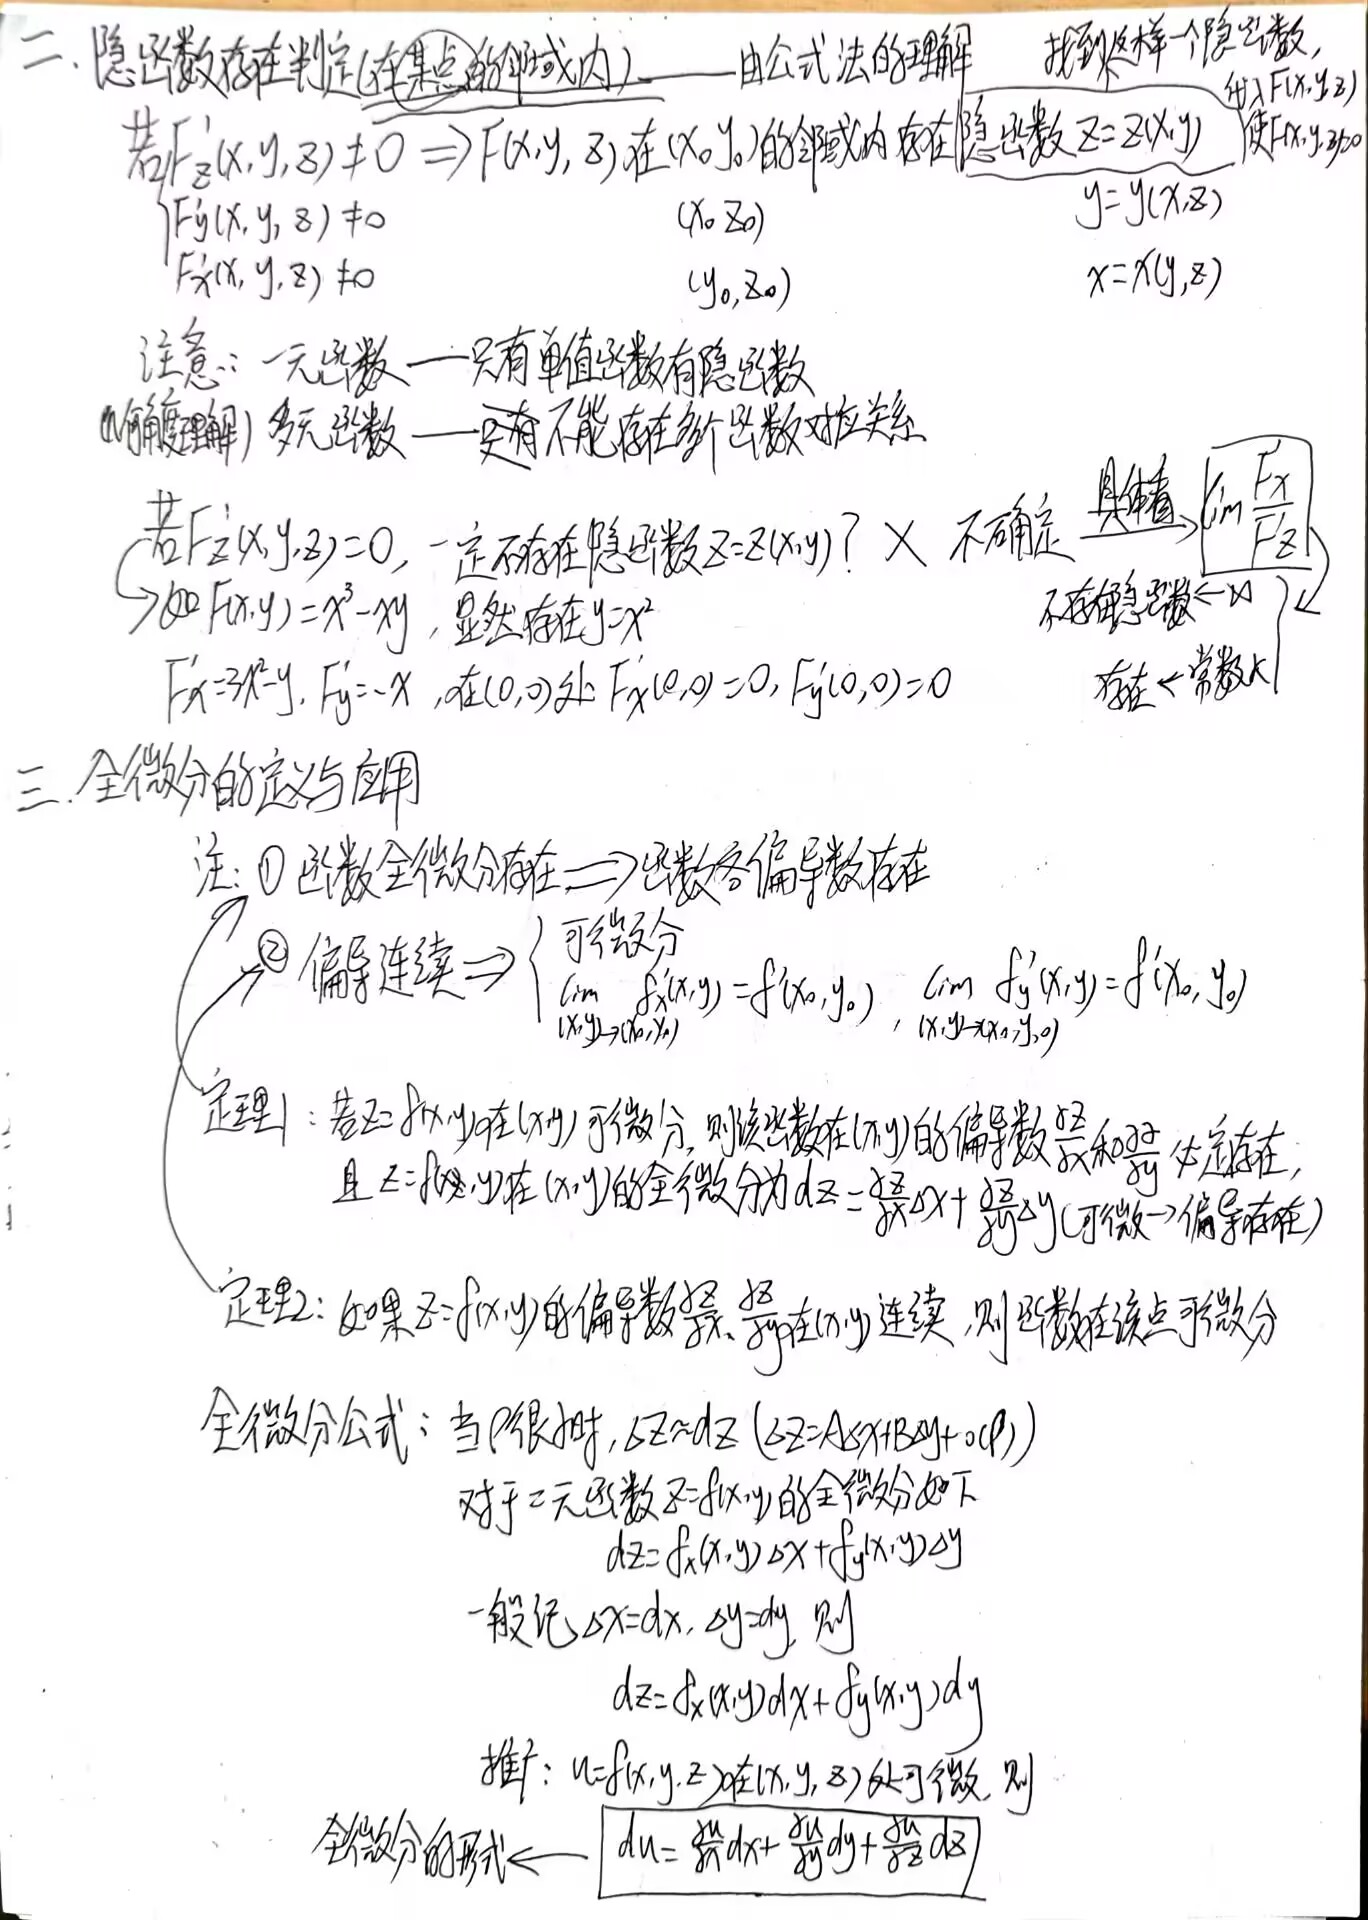 二.隐函数存在判定(在某点的邻域内)——由公式法的理解
找到这样一个隐函数,
代入F(x,y,z)
使F(x,y,z)=0
若F'z(x,y,z)≠0 ⇒ F(x,y,z)在(x₀y₀)的邻域内存在隐函数z=z(x,y)
F'y(x,y,z)≠0 (x₀z₀) y=y(x,z)
F'x(x,y,z)≠0 (y₀,z₀) x=x(y,z)
注意:一元函数——只有单值函数有隐函数
(几何角度理解)多元函数——只有不能存在多个函数对应关系
若F'z(x,y,z)=0,一定不存在隐函数z=z(x,y)? × 不确定 具体看→ lim F'x/F'z
不存在隐函数←∞
→如F(x,y)=x³-xy,显然存在y=x²
存在←常数k
F'x=3x²-y,F'y=-x,在(0,0)处F'x(0,0)=0,F'y(0,0)=0
三.全微分的定义与应用
注:①函数全微分存在⇒函数各偏导数存在
②偏导连续⇒{可微分
lim(x,y)→(x₀,y₀) f'x(x,y)=f'(x₀,y₀), lim(x,y)→(x₀,y₀) f'y(x,y)=f'(x₀,y₀)
定理1:若z=f(x,y)在(x,y)可微分,则该函数在(x,y)的偏导数∂z/∂x和∂z/∂y必定存在,
且z=f(x,y)在(x,y)的全微分为dz=∂z/∂xΔx+∂z/∂yΔy(可微→偏导存在)
定理2:如果z=f(x,y)的偏导数∂z/∂x、∂z/∂y在(x,y)连续,则函数在该点可微分
全微分公式:当ρ很小时,Δz≈dz(Δz=AΔx+BΔy+o(ρ))
对于二元函数z=f(x,y)的全微分如下
dz=fx(x,y)Δx+fy(x,y)Δy
一般记Δx=dx,Δy=dy,则
dz=fx(x,y)dx+fy(x,y)dy
推广:u=f(x,y,z)在(x,y,z)处可微,则
全微分的形式← du=∂u/∂xdx+∂u/∂ydy+∂u/∂zdz